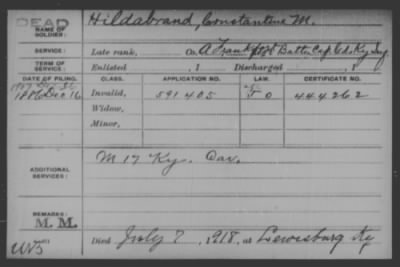 DEAD
NAME OF SOLDIER: Hildabrand, Constantine M.
SERVICE: Late rank, Co. A Frankfort Batt. Cap. Gds. Ky. Inf
Enlisted , 1 Discharged , 1
DATE OF FILING. CLASS. APPLICATION NO. LAW. CERTIFICATE NO.
1886 Dec 16 Invalid, 591405 F O 444262
Widow,
Minor,
ADDITIONAL SERVICES: M 17 Ky. Cav.
REMARKS:
M. M.
Died July 7, 1918, at Lewisburg Ky